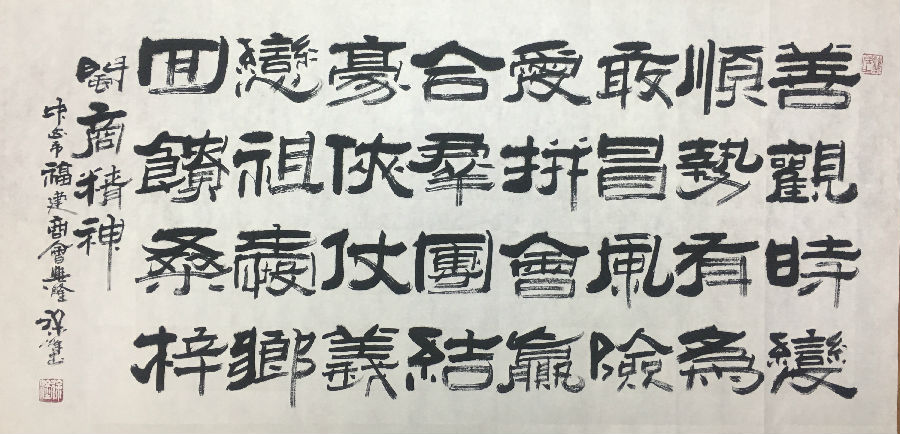 善觀時變
順勢有為
敢冒風險
愛拼會贏
合羣團結
豪俠仗義
戀祖愛鄉
回饋桑梓
閩商精神
福建商會興隆